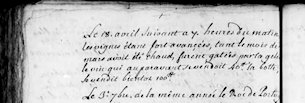 Le 18. avril suivant a 7 heures du matin
les vignes étant fort avancées, tant le mois de
mars avoit été chaud, furent gelées par la gelée
le vin qui auparavant se vendoit 40.tt la botte
se vendit bientôt 100.tt
Le 3. 7bre. de la même année le Roi de